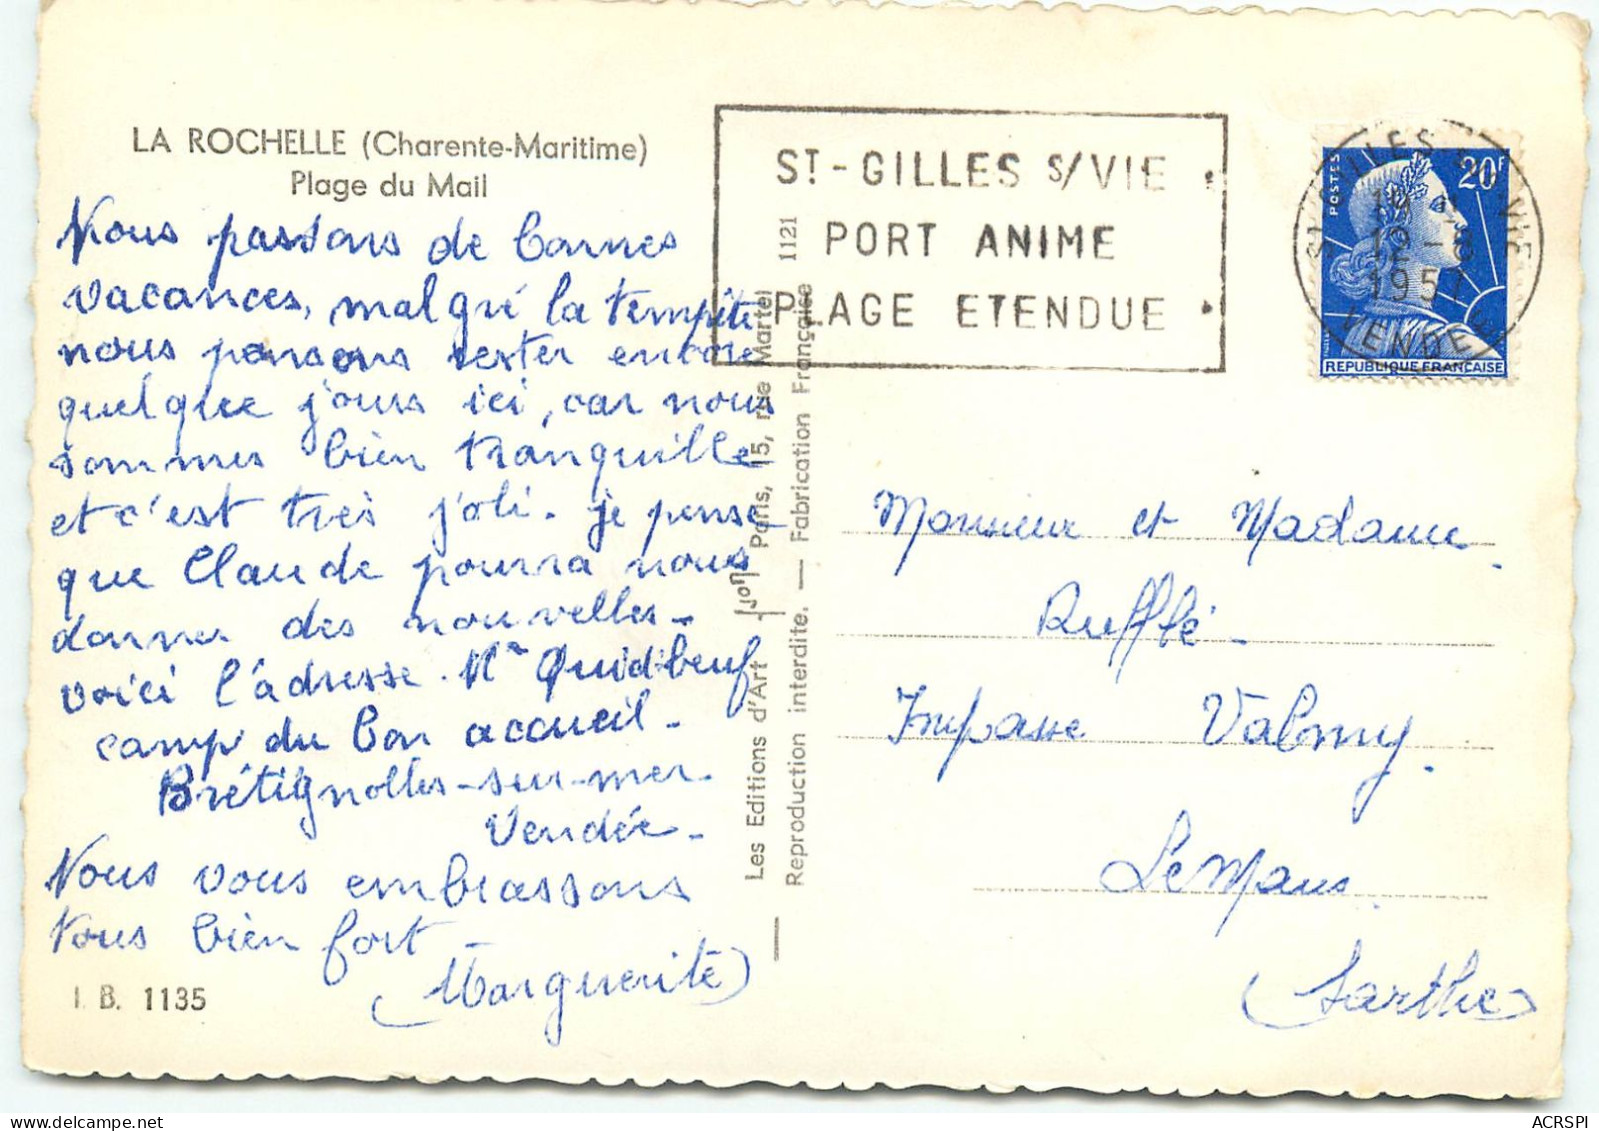 LA ROCHELLE (Charente-Maritime)
Plage du Mail
Nous passons de bonnes
vacances, malgré la tempête
nous pensons rester encore
quelque jours ici, car nous
sommes bien tranquille
et c'est très joli. je pense
que Claude pourra nous
donner des nouvelles -
voici l'adresse. Mr Quidbeuf
camp du bon accueil -
Brétignolles-sur-mer.
Vendée -
Nous vous embrassons
Tous bien fort -
(Marguerite)
I. B. 1135
ST-GILLES S/VIE
PORT ANIME
PLAGE ETENDUE
Les Editions d'Art Paris, 15, rue Martel
Reproduction interdite. — Fabrication Française 1121
POSTES
20F
REPUBLIQUE FRANÇAISE
ST GILLES-S-VIE
12 - 8
1957
VENDEE
Monsieur et Madame
Rufflé -
Impasse Valmy.
Le Mans.
(Sarthe)
ACRSPI